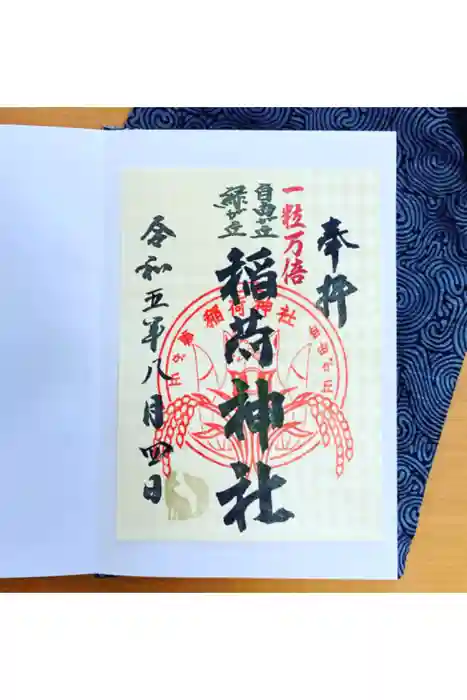 奉拝
一粒万倍
自由が丘
緑が丘
稲荷神社
稲荷神社
令和五年八月四日